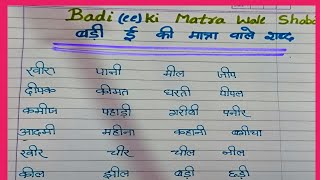 Badi (ee) ki Matra Wale Shabd
बड़ी ई की मात्रा वाले शब्द
खीरा पानी मील जीप
दीपक कीमत धरती पीपल
कमीज पहाड़ी गरीबी पनीर
आदमी महीना कहानी बगीचा
खीर चीर चील नील
कील झील बड़ी छड़ी